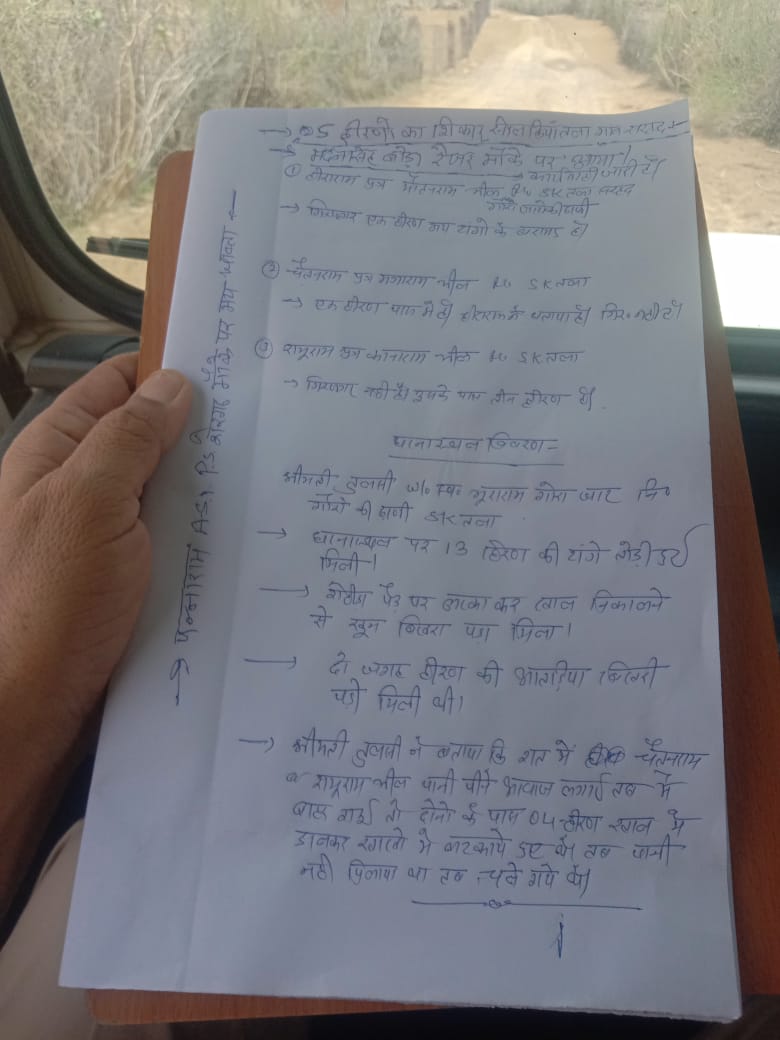 → 05 हीरणो का शिकार
→ मौके पर
① पुत्र भील R/o SK तला
→ गिरफ्तार एक हीरण मय टांगो के बरामद है।
② चैतनराम पुत्र मगाराम भील R/o SK तला
→ एक हीरण पास में है। हीराराम ने बताया है। गिर० नही है।
③ रामूराम पुत्र कानाराम भील R/o SK तला
→ गिरफ्तार नही है। इसके पास तीन हीरण है।
घटनास्थल विवरण -
श्रीमती तुलसी w/o स्व० भूराराम गोरा जाट नि०
गोरो की ढाणी SK तला
→ घटनास्थल पर 13 हिरण की टांगे तोड़ी हुई
मिली।
→ रोहीड़ा पेड़ पर लटका कर खाल निकालने
से खून बिखरा पड़ा मिला।
→ दो जगह हीरण की आंतड़िया बिखरी
पड़ी मिली थी।
→ श्रीमती तुलसी ने बताया कि रात में चैतनराम
व रामूराम भील पानी पीने आवाज लगाई तब मैं
बाहर गई तो दोनो के पास 04 हीरण
डालकर लटकाये हुए थे। तब पानी
नही पिलाया था तब चले गये थे।
→ पन्नाराम ASI, मौके पर मय जाब्ता ←